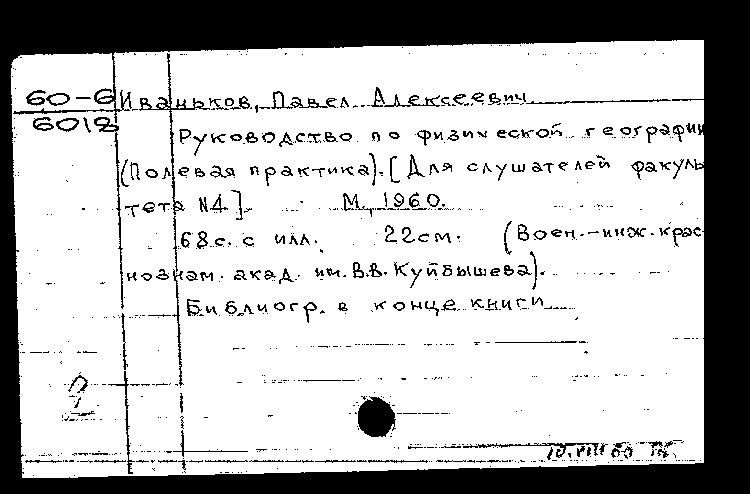 60-6 Иваньков, Павел Алексеевич
6012
Руководство по физической географии
(Полевая практика). [Для слушателей факуль
тета №4]. М., 1960.
68с. с илл. 22см. (Воен.-инж. крас
нознам. акад. им. В.В. Куйбышева).
Библиогр. в конце книги
10.VIII 60